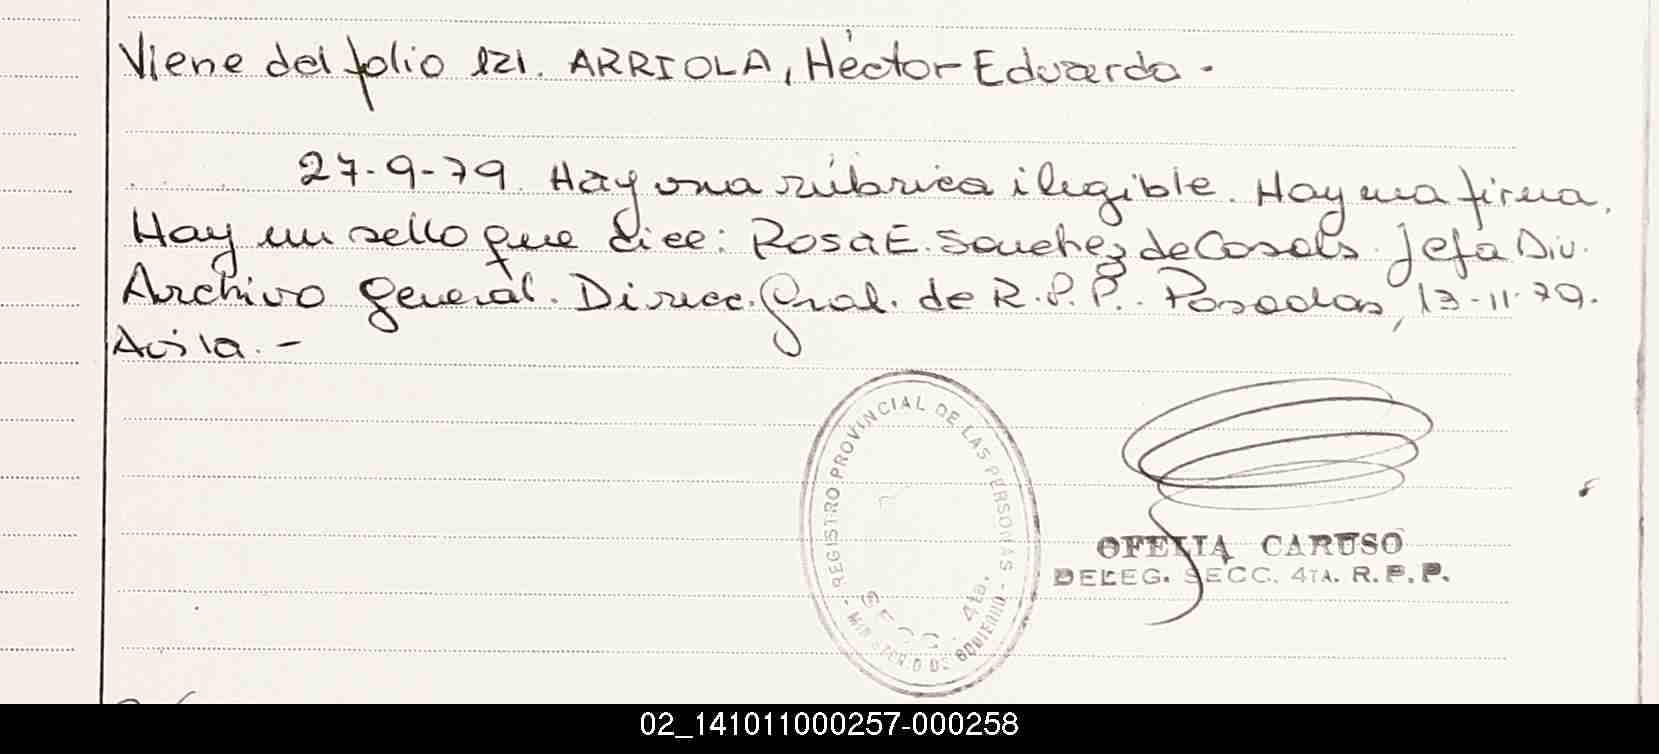 Viene del folio 121. ARRIOLA, Héctor Eduardo.
27-9-79. Hay una rúbrica ilegible. Hay una firma.
Hay un sello que dice: Rosa E. Sanchez de Cosols. Jefa Div.
Archivo General. Direcc. Gral. de R.P.P. Posadas, 13-11-79.
Avila.-
REGISTRO PROVINCIAL DE LAS PERSONAS - MINISTERIO DE GOBIERNO -
SECC. 4ta.
OFELIA CARUSO
DELEG. SECC. 4TA. R.P.P.
02_141011000257-000258